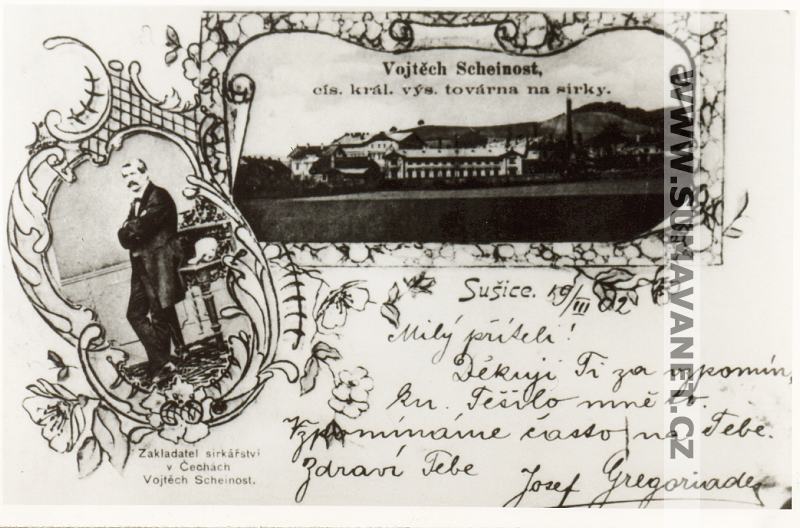 Vojtěch Scheinost,
cís. král. výs. továrna na sirky.
Sušice. 19/III 02
Milý příteli!
Děkuji Ti za upomín,
ku. Těšilo mně to.
Vzpomínáme často na Tebe.
Zdraví Tebe
Josef Gregoriades
Zakladatel sirkářství
v Čechách
Vojtěch Scheinost.
WWW.SUMAVANET.CZ